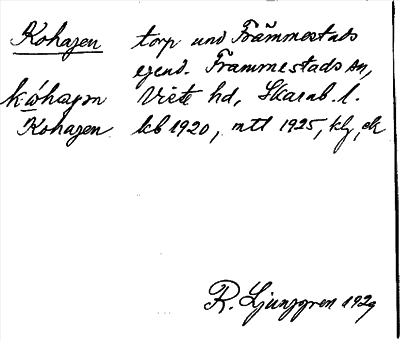 Kohagen torp und Främmestads
egend. Främmestads sn,
kóhagen Viste hd, Skarab. l.
Kohagen kb 1920, mtl 1925, klj, ek
R. Ljunggren 1929